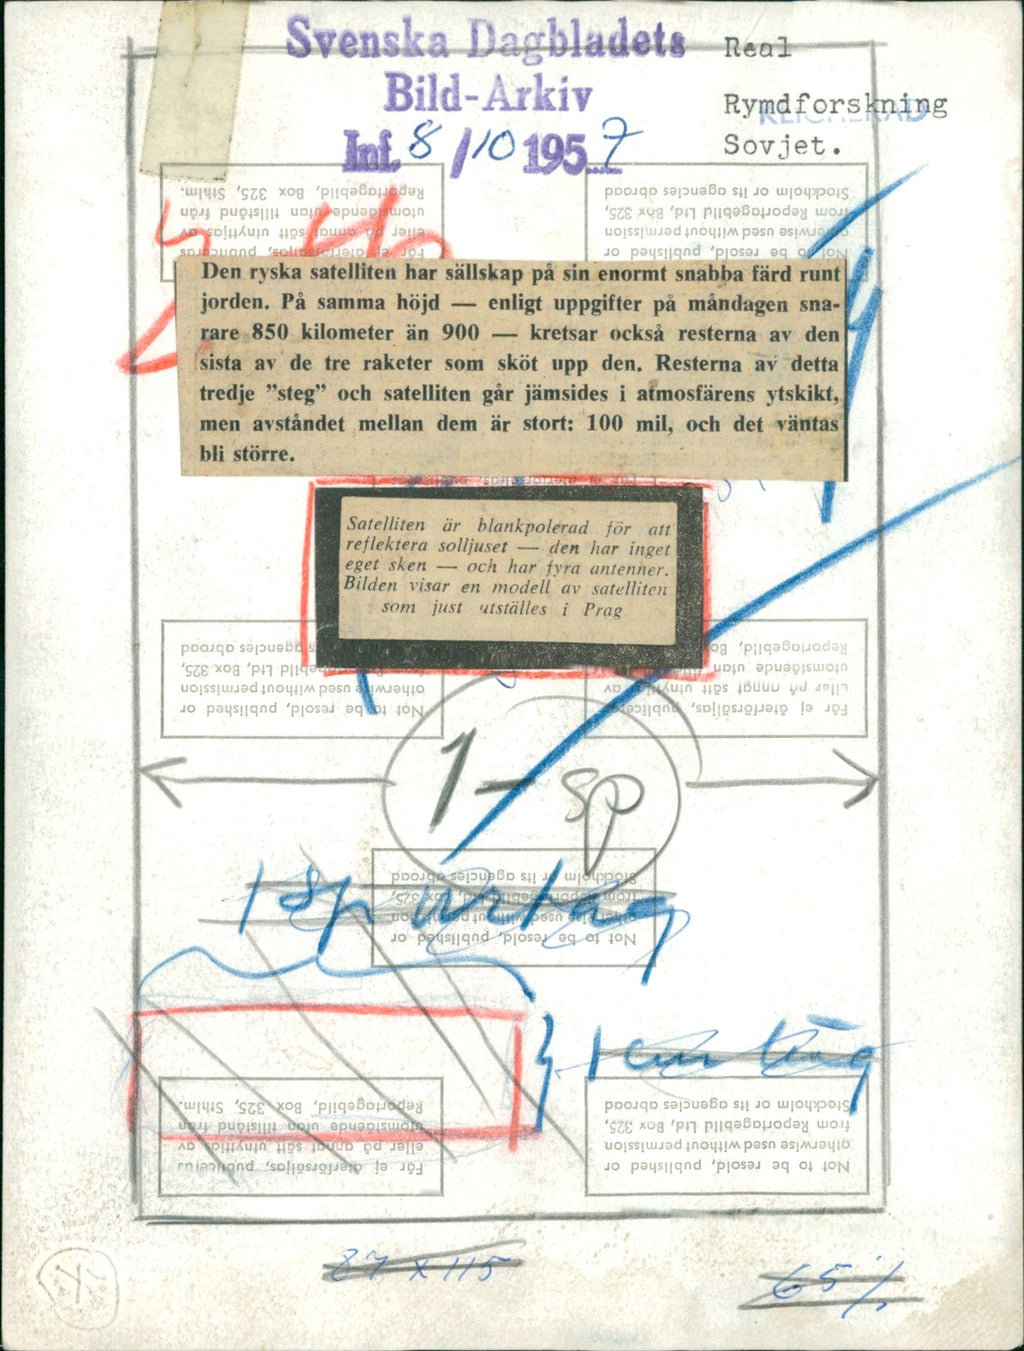 Svenska Dagbladets
Bild-Arkiv
Inf. 8/10 1957
Real
Rymdforskning
Sovjet.
Reportagebild, Box 325, Sthlm.
utomstående utan tillstånd från
eller på annat sätt utnyttjas av
För ej återförsäljas, publiceras
Stockholm or its agencies abroad
from Reportagebild Ltd, Box 325,
otherwise used without permission
Not to be resold, published or
Den ryska satelliten har sällskap på sin enormt snabba färd runt
jorden. På samma höjd — enligt uppgifter på måndagen sna-
rare 850 kilometer än 900 — kretsar också resterna av den
sista av de tre raketer som sköt upp den. Resterna av detta
tredje ”steg” och satelliten går jämsides i atmosfärens ytskikt,
men avståndet mellan dem är stort: 100 mil, och det väntas
bli större.
Satelliten är blankpolerad för att
reflektera solljuset — den har inget
eget sken — och har fyra antenner.
Bilden visar en modell av satelliten
som just utställes i Prag
agencies abroad
Ltd, Box 325,
otherwise used without permission
Not to be resold, published or
Reportagebild, Bo
utomstående utan
eller på annat sätt utnyttjas av
För ej återförsäljas, publiceras
1-sp
Stockholm or its agencies abroad
from Reportagebild Ltd, Box 325,
otherwise used without permission
Not to be resold, published or
1 sp
Reportagebild, Box 325, Sthlm.
utomstående utan tillstånd från
eller på annat sätt utnyttjas av
För ej återförsäljas, publiceras
Stockholm or its agencies abroad
from Reportagebild Ltd, Box 325,
otherwise used without permission
Not to be resold, published or
87 x 115
65%